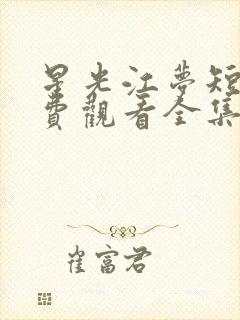 星光江夢短
費觀看全集
崔富君